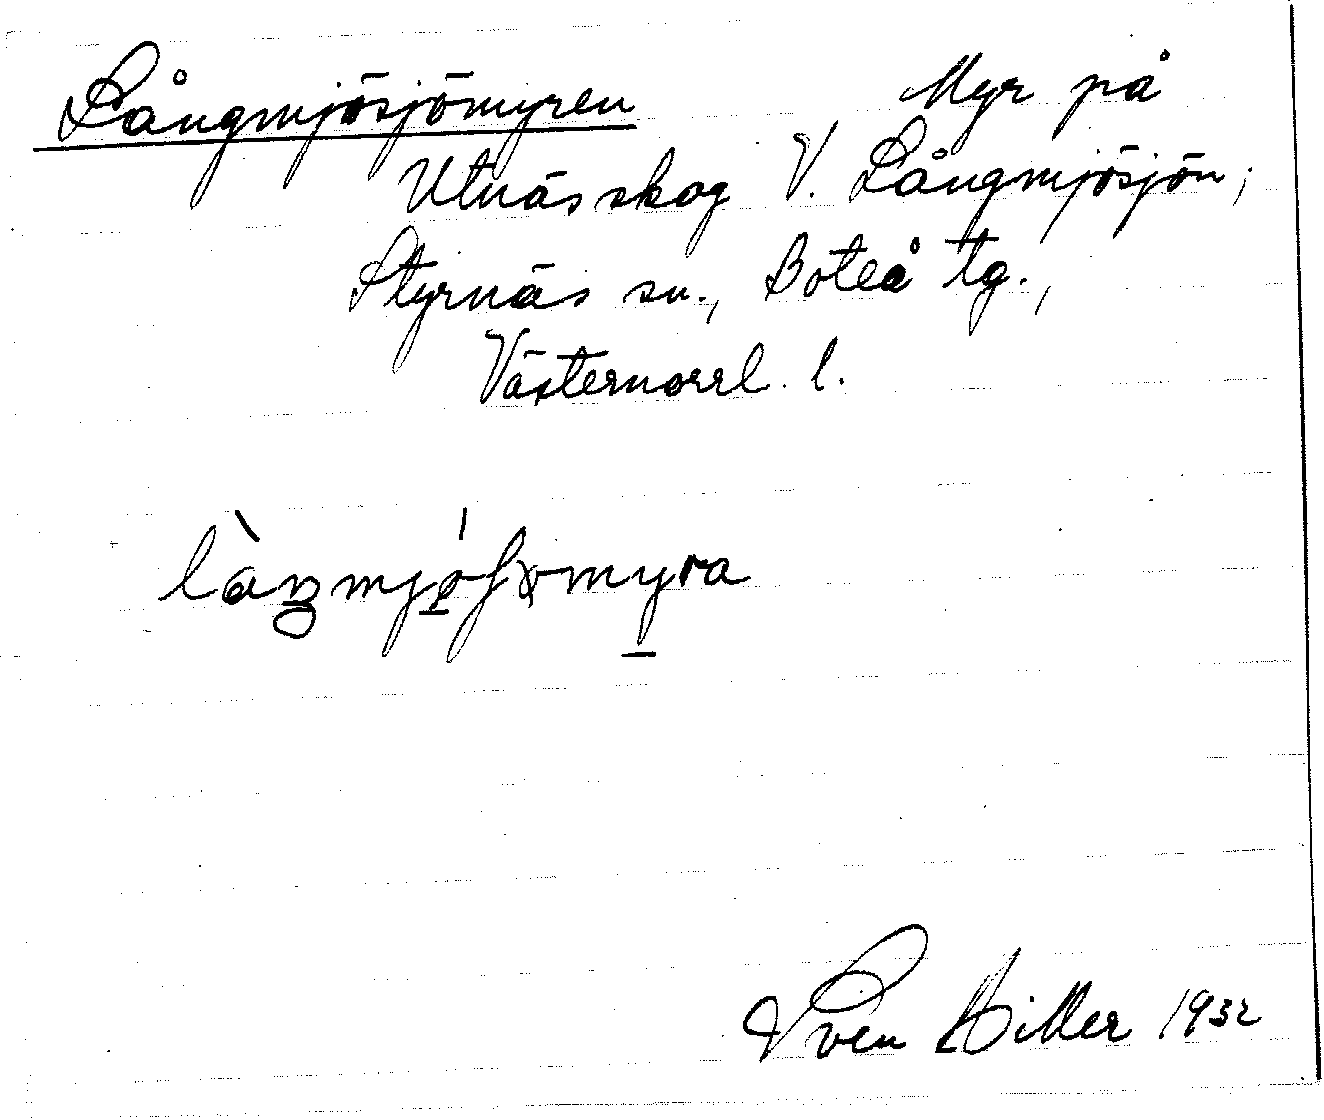 Långmjösjömyren Myr på
Utnässkog V. Långmjösjön,
Styrnäs sn., Boteå tg.,
Västernorrl. l.
Sven Hiller 1932